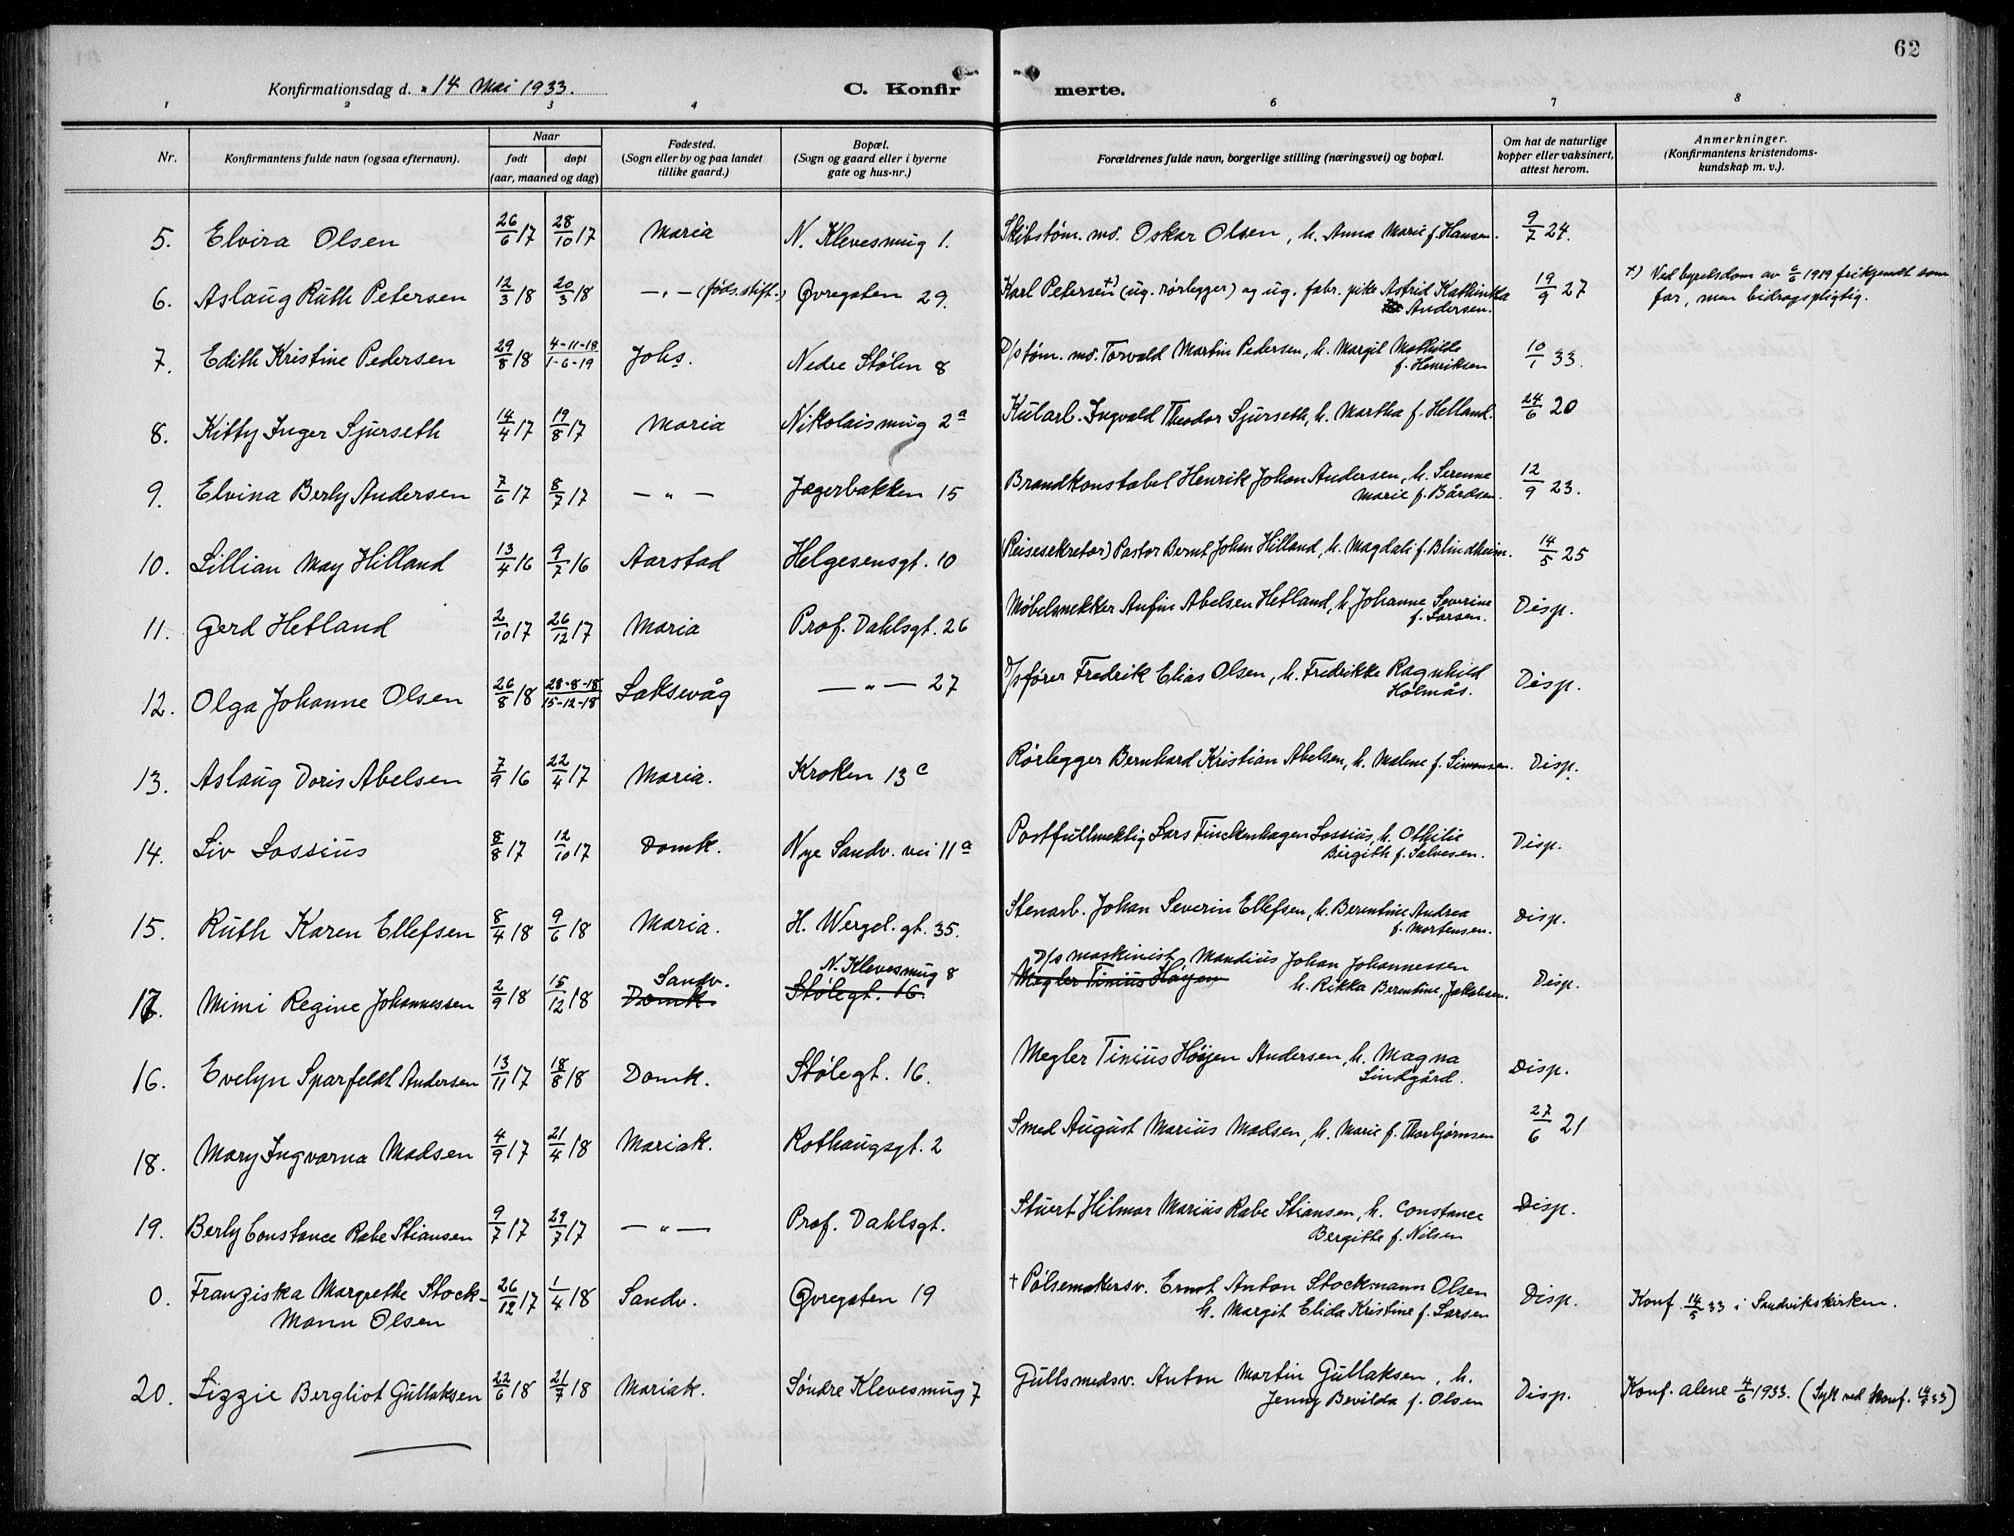 62
Konfirmationsdag d. 14 Mai 1933.
C. Konfir merte.
1 2 3 4 6 7 8
Nr.
Konfirmantens fulde navn (ogsaa efternavn).
Naar
født døpt
(aar, maaned og dag)
Fødested.
(Sogn eller by og paa landet
tillike gaard.)
Bopæl.
(Sogn og gaard eller i byerne
gate og hus-nr.)
Forældrenes fulde navn, borgerlige stilling (næringsvei) og bopæl.
Om hat de naturlige
kopper eller vaksinert,
attest herom.
Anmerkninger.
(Konfirmantens kristendoms-
kundskap m. v.).
5. Elvira Olsen 26/6 17 28/10 17 Maria N. Klevesmug 1. Skibstøm. ms. Oskar Olsen, h. Anna Marie f. Hansen. 9/7 24.
6. Aslaug Ruth Petersen 12/3 18 20/3 18 -"- (føds.stift.) Øvregaten 29. Karl Petersen +) (ug. rørlegger) og ug. fabr. pike Astrid Kathinka 19/9 27 +) Ved byretsdom av 6/6 1919 frikjendt som
Andersen. far, men bidragspligtig.
7. Edith Kristine Pedersen 29/8 18 4-11-18/1-6-19 Johs. Nedre Stølen 8 D/s tøm. ms. Torvald Martin Pedersen, h. Margit Mathilde 10/1 33.
f. Henriksen
8. Kitty Inger Sjurseth 14/4 17 19/8 17 Maria Nikolaismug 2a Kularb. Ingvald Theodor Sjurseth, h. Martha f. Helland. 24/6 20
9. Elvina Berly Andersen 7/6 17 8/7 17 - " - Jægerbakken 15 Brandkonstabel Henrik Johan Andersen, h. Serenne 12/9 23.
Marie f. Bårdsen.
10. Lillian May Hilland 13/4 16 9/7 16 Aarstad Helgesensgt. 10 (Reisesekretær) Pastor Bernt Johan Hilland, h. Magdali f. Blindheim. 14/5 25
11. Gerd Hetland 2/10 17 26/12 17 Maria Prof. Dahlsgt. 26 Møbelsnekker Anfin Abelsen Hetland, h. Johanne Severine Disp.
f. Larsen.
12. Olga Johanne Olsen 26/8 18 28-8-18/15-12-18 Laksevåg - " - 27 D/s fører Fredrik Elias Olsen, h. Fredrikke Ragnhild Disp.
Holmås.
13. Aslaug Doris Abelsen 7/9 16 22/4 17 Maria. Kroken 13c Rørlegger Bernhard Kristian Abelsen, h. Malene f. Simonsen. Disp.
14. Liv Lossius 8/8 17 12/10 17 Domk. Nye Sandv. vei 11a Postfullmektig Lars Finckenhagen Lossius, h. Othilie Disp.
Birgith f. Salvesen.
15. Ruth Karen Ellefsen 8/4 18 9/6 18 Maria. H. Wergel. gt. 35. Stenarb. Johan Severin Ellefsen, h. Berentine Andrea Disp.
f. Mortensen.
17. Mimi Regine Johannessen 2/9 18 15/12 18 Sandv. Domk. N. Klevesmug 8 Stølegt. 16. D/s maskinist Mandius Johan Johannessen Disp.
Megler Tinius Høyen h. Rikka Berentine Jakobsen.
16. Evelyn Sparfeldt Andersen 13/11 17 18/8 18 Domk. Stølegt. 16. Megler Tinius Høyen Andersen, h. Magna Disp.
Lindgård.
18. Mary Ingvarna Madsen 4/9 17 21/4 18 Mariak. Rothaugsgt. 2 Smed August Marius Madsen, h. Marie f. Thorbjørnsen 27/6 21
19. Berly Constance Rabe Stiansen 9/7 17 29/7 17 - " - Prof. Dahlsgt. Stuert Hilmar Marius Rabe Stiansen, h. Constance Disp.
Bergitte f. Nilsen
0. Franziska Margrethe Stock- 26/12 17 1/4 18 Sandv. Øvregaten 19 + Pølsemakersv. Ernst Anton Stockmann Olsen Disp. Konf. 14/5 33 i Sandvikskirken.
mann Olsen h. Margit Elida Kristine f. Larsen
20. Lizzie Bergliot Gullaksen 22/6 18 21/7 18 Mariak. Søndre Klevesmug 7 Gullsmedsv. Anton Martin Gullaksen, h. Disp. Konf. alene 4/6 1933. (Syk ved konf. 14/5 33)
Jenny Bevilda f. Olsen